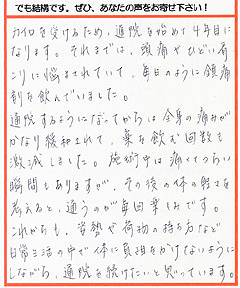 でも結構です。ぜひ、あなたの声をお寄せ下さい！
カイロを受けるため、通院を始めて4年目に
なります。それまでは、頭痛やひどい肩
こりに悩まされていて、毎日のように鎮痛
剤を飲んでいました。
通院するようになってからは全身の痛みが
かなり緩和されて、薬を飲む回数も
激減しました。施術中は痛くてつらい
瞬間もありますが、その後の体の軽さを
考えると、通うのが毎回楽しみです。
これからも、姿勢や荷物の持ち方など
日常生活の中で体に負担をかけないように
しながら、通院を続けたいと思っています。